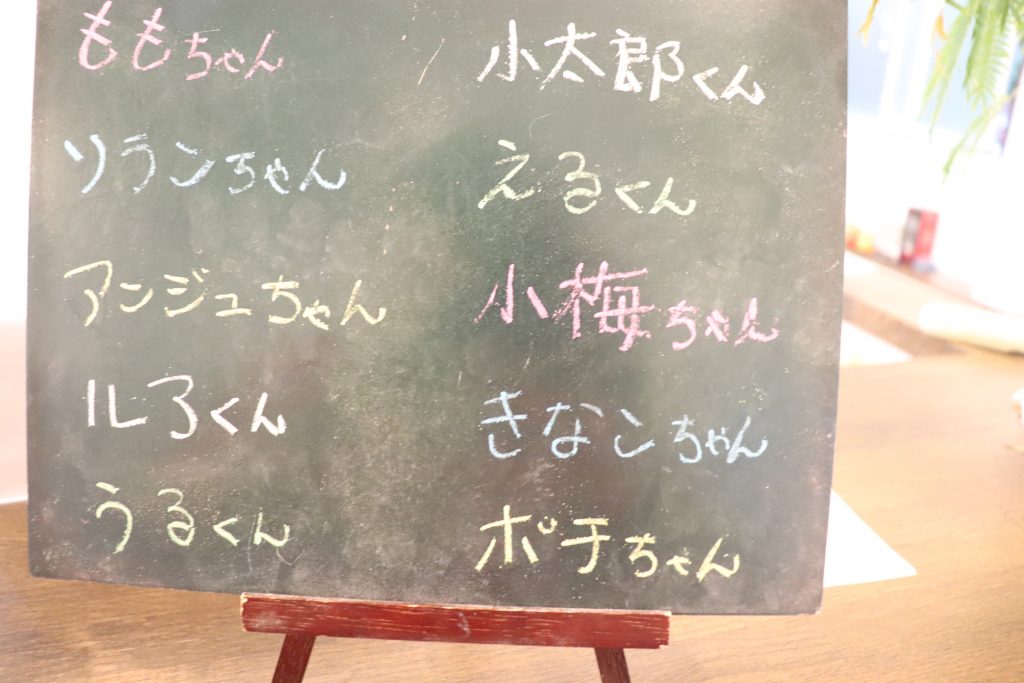 ももちゃん
ソランちゃん
アンジュちゃん
ル了くん
うるくん
小太郎くん
えるくん
小梅ちゃん
きなこちゃん
ポチちゃん